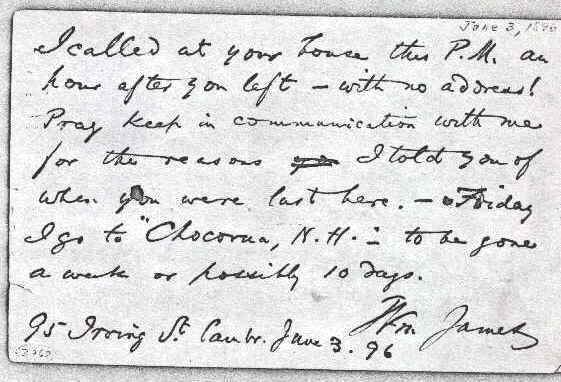 June 3, 1896
I called at your house this P.M. an
hour after you left – with no address!
Pray keep in communication with me
for the reasons I told you of
when you were last here. – Friday
I go to "Chocorua, N.H." – to be gone
a week or possibly 10 days.
Wm James
95 Irving St. Cambr. June 3. 96